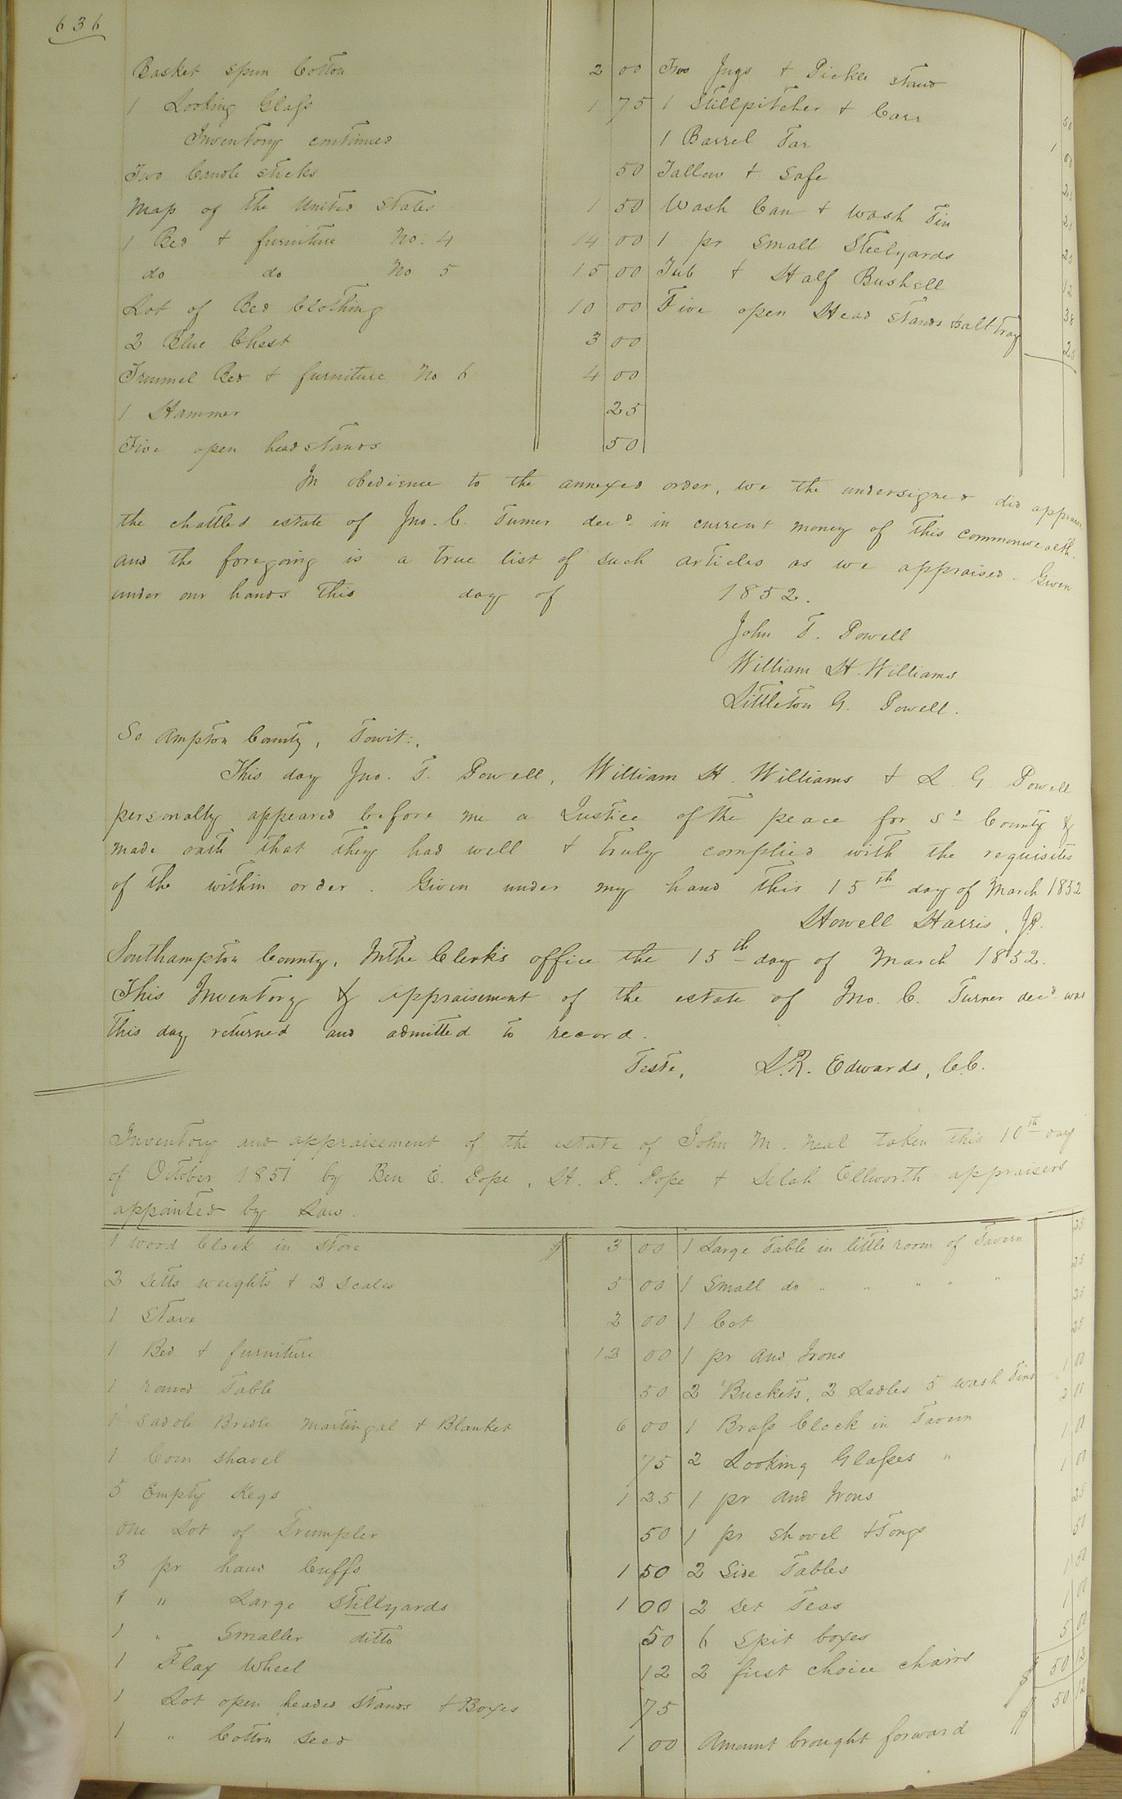 636
Basket spun Cotton 2 00
1 Looking Glass 1 75
Inventory continued
Two Candle sticks 50
Map of the United States 1 50
1 Bed & furniture No. 4 14 00
do do No 5 15 00
Lot of Bed Clothing 10 00
2 Blue Chest 3 00
Trummel Bed & furniture No 6 4 00
1 Hammer 25
Five open head stands 50
Two Jugs & Pickle stand
1 Stillpitcher & Can 50
1 Barrel Tar 1
Tallow & Safe
Wash Can & wash Tin
1 pr small Steelyards
Tub & Half Bushell 12
Five open Head stands & salt tray 38
In obedience to the annexed order, we the undersigned did appraise
the chattled estate of Jno. C. Turner decd. in current money of this commonwealth.
and the foregoing is a true list of such articles as we appraised. Given
under our hands this day of 1852.
John T. Powell
William H. Williams
Littleton G. Powell.
So ampton County, Towit:,
This day Jno. T. Powell, William H. Williams & L. G Powell
personally appeared before me a Justice of the peace for sd County &
made oath that they had well & truly complied with the requisites
of the within order. Given under my hand this 15th day of March 1852
Howell Harris, JP.
Southampton County, In the Clerk's office the 15th day of March 1852.
This Inventory & appraisement of the estate of Jno. C. Turner decd was
this day returned and admitted to record.
Teste, L.R. Edwards, C.C.
Inventory and appraisement of the estate of John M. Neal taken this 10th day
of October 1851 by Ben E. Pope, H. P. Pope & Selah Ellworth appraisers
appointed by Law.
1 Wood Clock in Store $ 3 00
2 Setts weights & 2 Scales 5 00
1 Stove 2 00
1 Bed & furniture 12 00
1 round Table 50
1 Saddle Bridle Martingal & Blanket 6 00
1 Corn Shavel 75
5 Empty Kegs 1 25
One Lot of Trumpler 50
3 pr hand Cuffs 1 50
1 " Large Stillyards 1 00
1 " Smaller ditto 50
1 Flax Wheel 12
1 Lot open headed stands & Boxes 75
1 " Cotton Seed 1 00
1 Large Table in little room of Tavern 25
1 Small do " " " " 25
1 Cot 25
1 pr And Irons 25
2 Buckets, 2 Ladles 5 wash Tins 1 00
1 Brass Clock in Tavern 2 00
2 Looking Glasses " 1 00
1 pr And Irons 1 00
1 pr Shovel & Tongs 25
2 Side Tables 50
2 Set Teas 1 50
6 Spit boxes 1 00
2 first choice chairs 5 00
$ 50 12
Amount brought forward $ 50 12